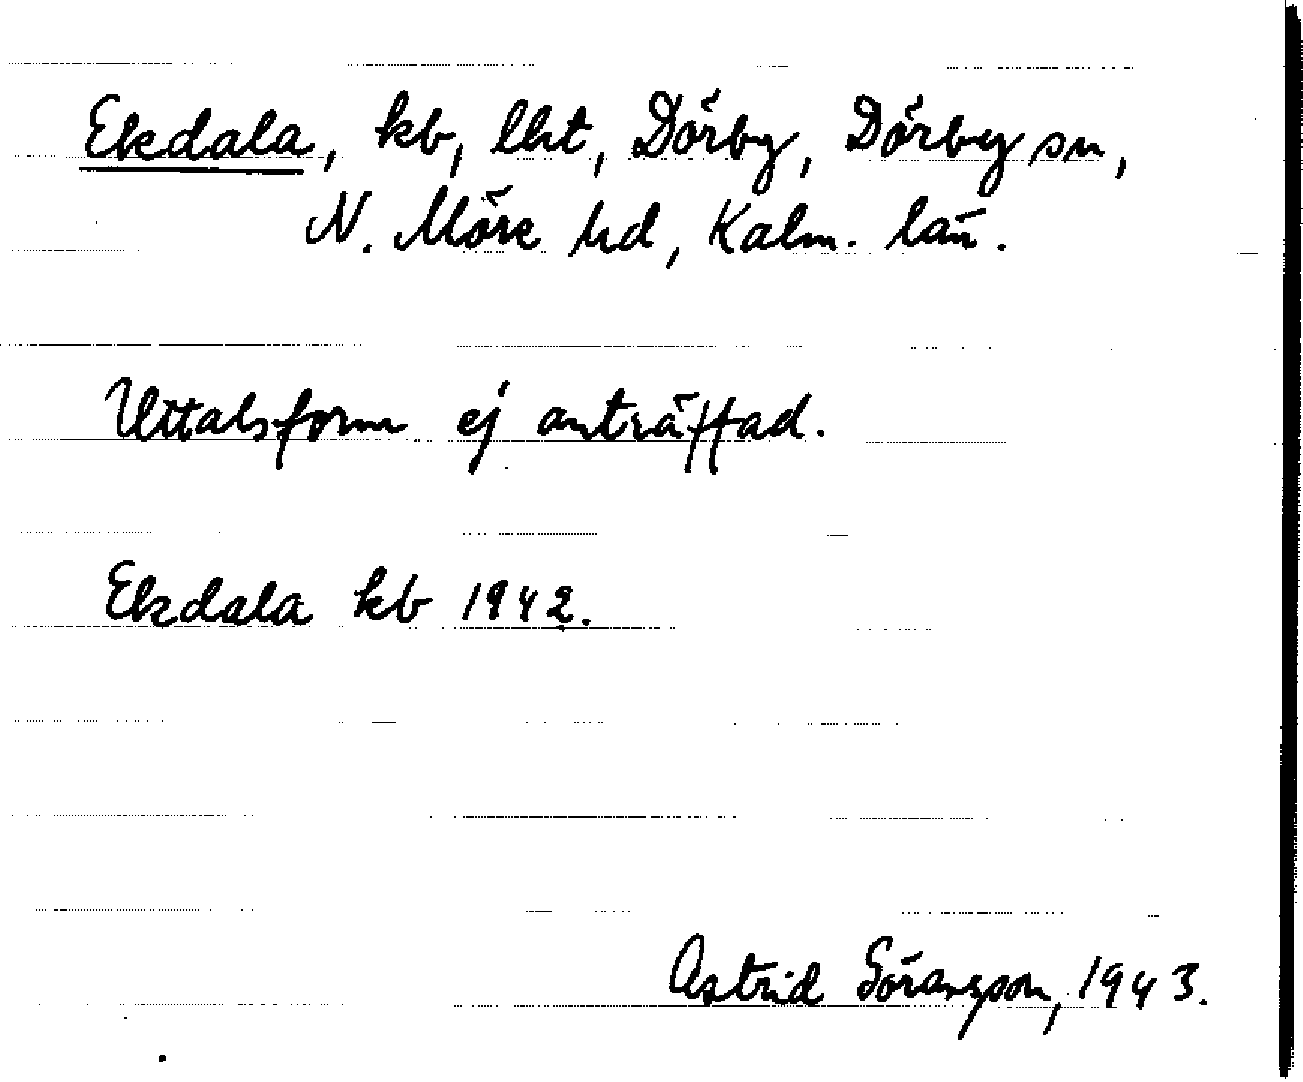 Ekdala, kb, lht, Dörby, Dörby sn,
N. Möre hd, Kalm. län.
Uttalsform ej anträffad.
Ekdala kb 1942.
Astrid Göransson, 1943.